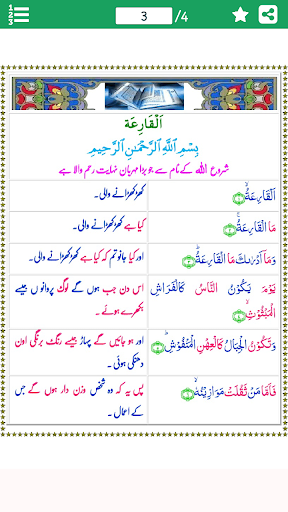 3 /4
اَلْقَارِعَة
بِسْمِ اللَّهِ الرَّحْمَٰنِ الرَّحِيمِ
شروع اللہ کے نام سے جو بڑا مہربان نہایت رحم والا ہے
اَلْقَارِعَةُۙ
کھڑکھڑانے والی۔
مَا الْقَارِعَةُۚ
کیا ہے کھڑکھڑانے والی۔
وَمَاۤ اَدْرٰىكَ مَا الْقَارِعَةُؕ
اور کیا جانو تم کہ کیا ہے کھڑکھڑانے والی۔
يَوْمَ يَكُوْنُ النَّاسُ كَالْفَرَاشِ
الْمَبْثُوْثِۙ
اس دن جب ہوں گے لوگ پروانوں جیسے
بکھرے ہوئے۔
وَتَكُوْنُ الْجِبَالُ كَالْعِهْنِ الْمَنْفُوْشِؕ
اور ہو جائیں گے پہاڑ جیسے رنگ برنگی اون
دھنکی ہوئی۔
فَاَمَّا مَنْ ثَقُلَتْ مَوَازِيْنُهٗۙ
پس یہ کہ وہ شخص وزن دار ہوں گے جس
کے اعمال۔